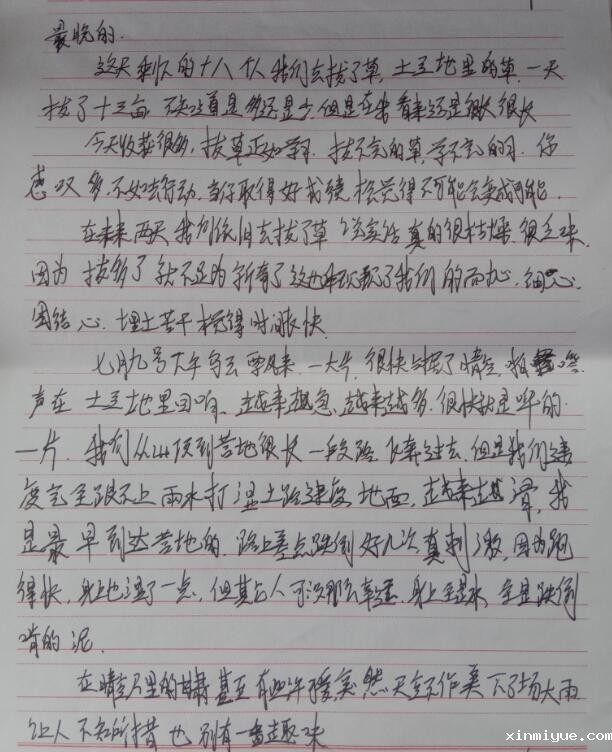 最晚的.
这天剩下的十八个人我们去拔了草,土豆地里的草,一天
拔了十三亩,不知道是多还是少,但是在我看来还是很长很长
今天收获很多,拔草正如学习.拔不完的草,学不完的习.你
想又多,不如去行动,当你取得好成绩,松觉得不可能会变成可能.
在未来两天我们依旧去拔了草 说实话真的很枯燥,很乏味.
因为拔多了就不足为新奇了这也体现了我们的耐心.细心.
团结心.埋土苦干松觉得时间很快.
七月九号下午乌云飘来.一大片.很快占据了晴空,
声在土豆地里回响、越来越急.越来越多.很快就是哗的
一片.我们从山顶到营地很长一段路 飞奔过去.但是我们速
度完全跟不上雨水打湿土路速度 地面,越来越滑,我
是最早到达营地的.路上差点跌倒好几次真刺激,因为跑
得快,身上也湿了一点,但其它人可没那么幸运.身上全是水,全是跌倒
啃的泥.
在晴空万里的甘肃甚至有些许 突然天空作美下了场大雨
让人不知所措也别有一番趣味
xinmiyue.com